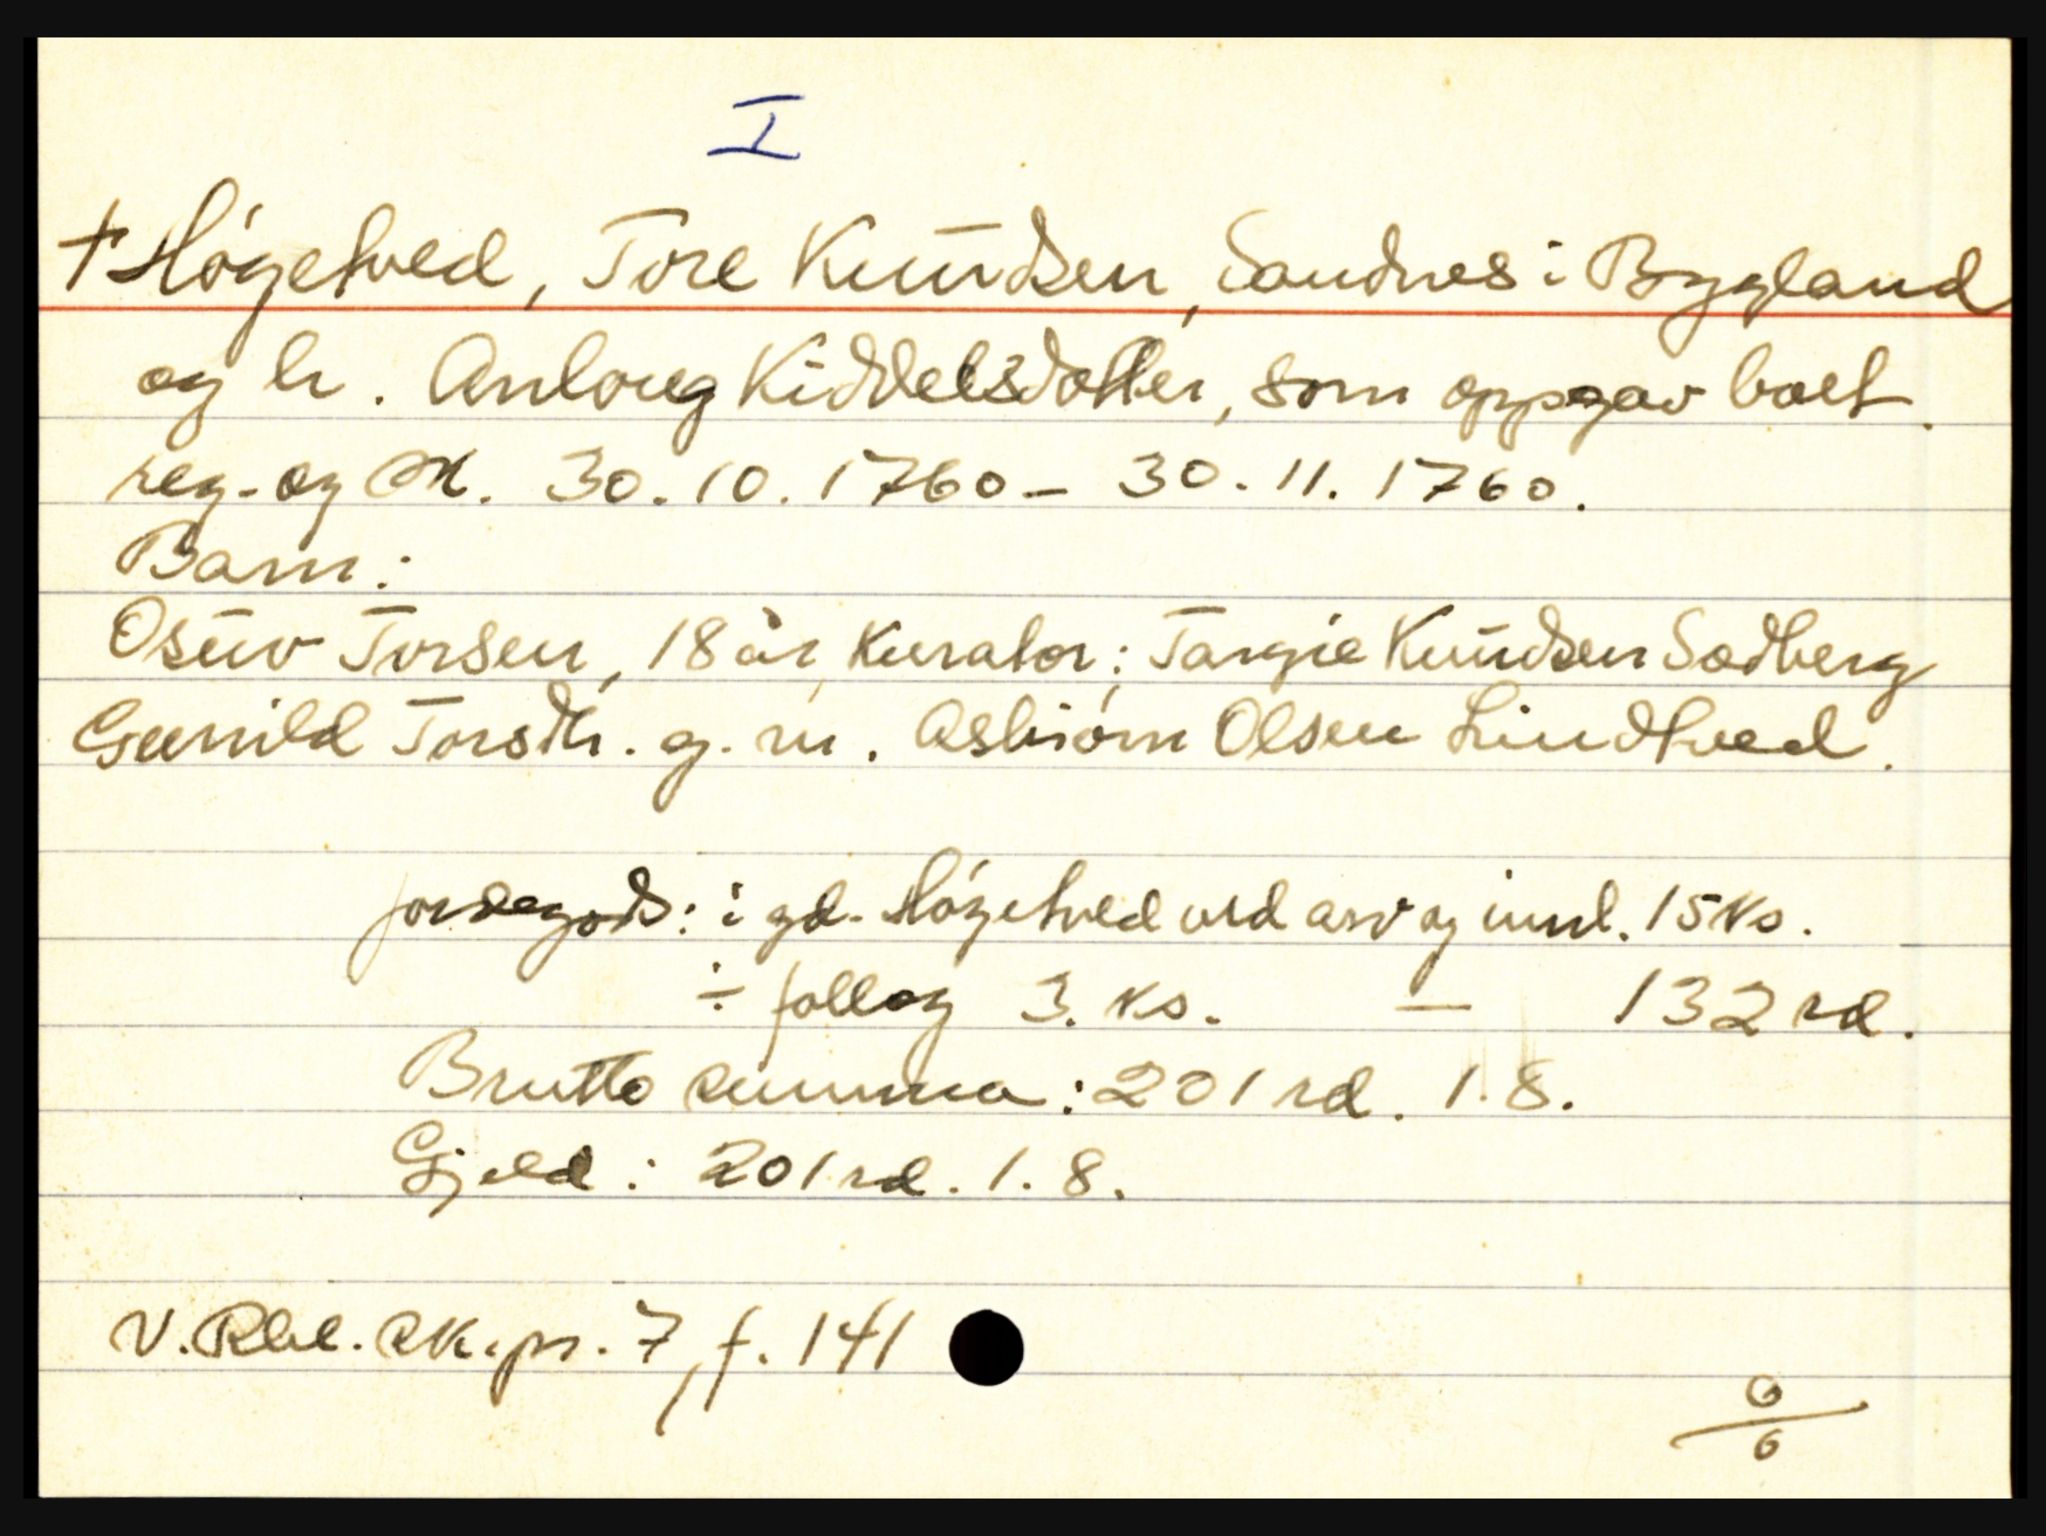 I
† Høgetved, Tore Knudsen, Sandnes i Bygland
og h. Anloug Kiddelsdotter, som oppgav boet.
reg. og sk. 30.10.1760 – 30.11.1760.
Barn:
Osuv Torsen, 18 år, Kurator: Targie Knudsen Sadberg
Gunild Torsdtr. g. m. Asbiørn Olsen Lindtved.
jordegods: i gd. Høgetved ved arv og innl. 15 ks.
÷ følleg 3. ks. — 132 rd.
Brutto summa: 201 rd. 1.8.
Gjeld: 201 rd. 1.8.
V. Rbl. sk.pr. 7, f. 141
0/0